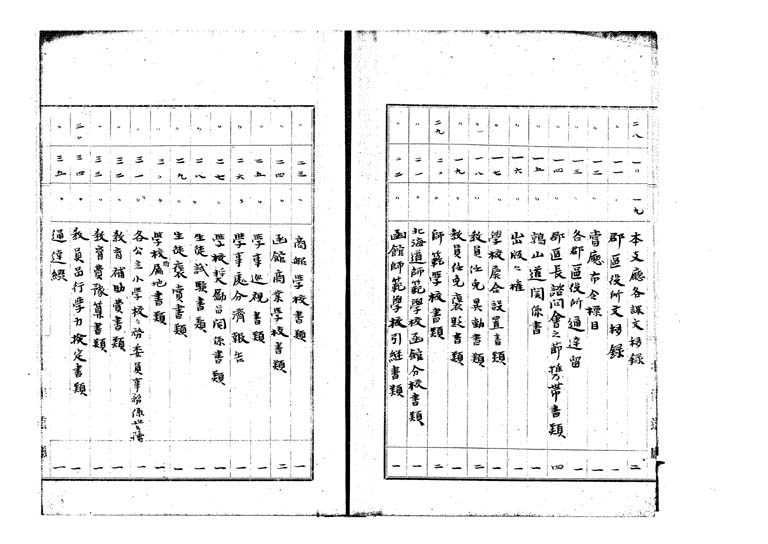 二八 一〇 一九 本支廳各課文移録 二
〃 一一 〃 郡區役所文移録 一
〃 一二 〃 當廳布令標目 一
〃 一三 〃 各郡區役所通達留 一
〃 一四 〃 郡區長諮問會之節携帯書類 四
〃 一五 〃 道関係書 一
〃 一六 〃 出版々権 一
〃 一七 〃 學校廃合設置書類 一
〃 一八 〃 教員任免異動書類 二
〃 一九 〃 教員任免褒貶書類 一
二九 二〇 〃 師範學校書類 二
〃 二一 〃 北海道師範學校函館分校書類 一
〃 二二 〃 函館師範學校引継書類 一
〃 二三 〃 商船學校書類 一
〃 二四 〃 函館商業學校書類 二
〃 二五 〃 學事巡視書類 一
〃 二六 〃 學事處分済報告 一
〃 二七 〃 學校奨励品関係書類 一
〃 二八 〃 生徒試験書類 一
〃 二九 〃 生徒褒賞書類 一
〃 三〇 〃 學校属地書類 一
〃 三一 〃 各公立小学校務委員事務係 一
〃 三二 〃 教育補助費書類 一
〃 三三 〃 教育費豫算書類 一
三〇 三四 〃 教員品行學力検定書類 一
〃 三五 〃 通達綴 一